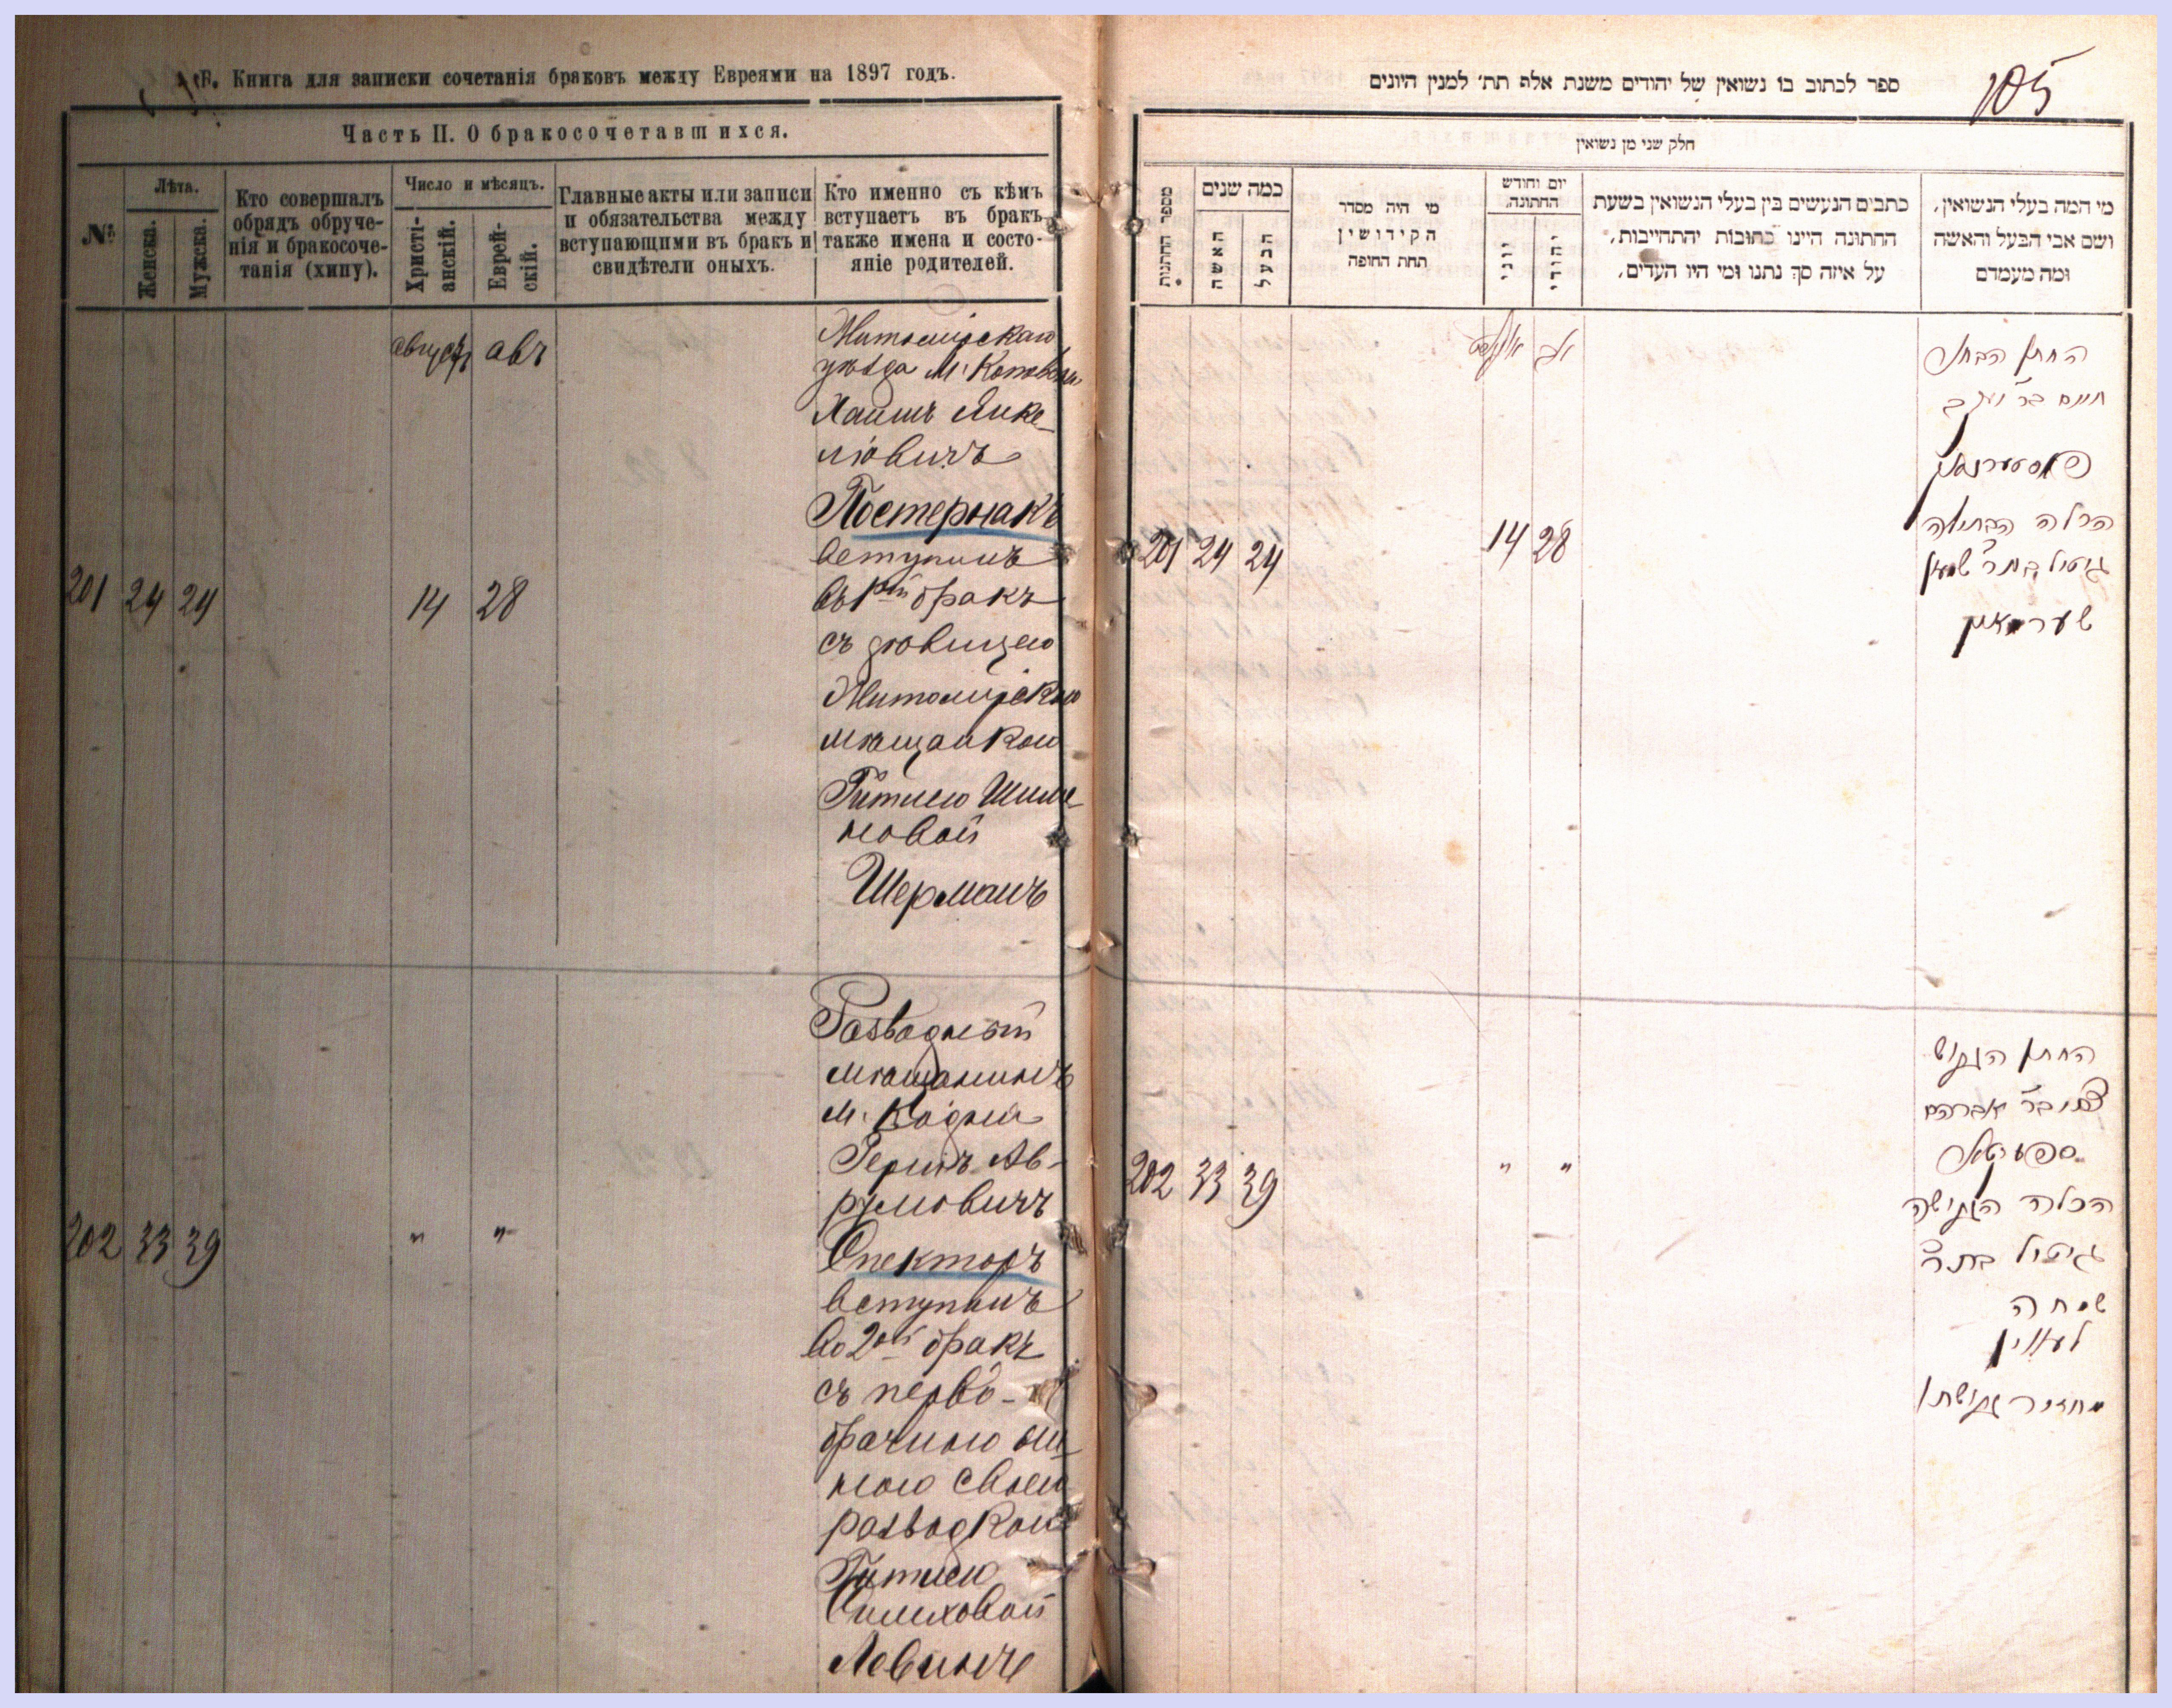 Б. Книга для записки сочетанія браковъ между Евреями на 1897 годъ.
Часть II. О бракосочетавшихся.
№
Лѣта.
Женска.
Мужска.
Кто совершалъ
обрядъ обруче-
нія и бракосоче-
танія (хипу).
Число и мѣсяцъ.
Христі-
анскій.
Еврей-
скій.
Главные акты или записи
и обязательства между
вступающими въ бракъ и
свидѣтели оныхъ.
Кто именно съ кѣмъ
вступаетъ въ бракъ
также имена и состо-
яніе родителей.
августъ авъ
201 24 24 14 28
Житомірскаго
уѣзда М.
Хаимъ Янке-
лювичъ
Постернакъ
вступилъ
въ 1й бракъ
съ дѣвицею
Житомірскою
мѣщанкою
Гитлею Шиме
новой
Шерманъ
202 33 39 " "
Разводный
мѣщанинъ
м. Кодни
Гершъ Ав-
румовичъ
Спекторъ
вступилъ
во 2ой бракъ
съ перво-
брачною
своею
разводкою
Гитлею
Симховой
Левинъ
ספר לכתוב בו נשואין של יהודים משנת אלף תת׳ למנין היונים
105
חלק שני מן נשואין
מספר החתנות
כמה שנים
האשה
הבעל
מי היה מסדר
הקידושין
תחת החופה
יום וחודש
החתונה,
יוני
יהודי
כתבים הנעשים בין בעלי הנשואין בשעת
החתונה היינו כתובות יהתחייבות,
על איזה סך נתנו ומי היו העדים,
מי המה בעלי הנשואין,
ושם אבי הבעל והאשה
ומה מעמדם
אויגוסט אב
201 24 24 14 28
החתן הבחור
חיים בר יעקב
פאסטערנאק
הכלה הבתולה
גיטיל בתר שמעון
שערמאן
202 33 39 " "
החתן הגרוש
צבי בר אברהם
ספעקטאר
הכלה הגרושה
גיטיל בתר
שמחה
לעווין
מחזיר גרושתו